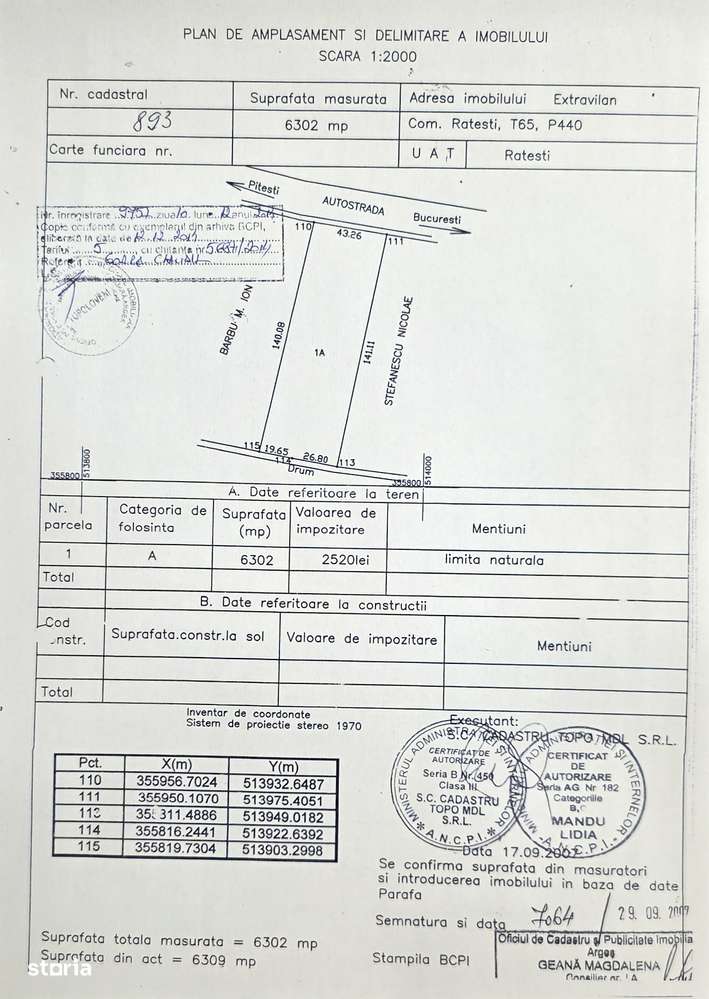 PLAN DE AMPLASAMENT SI DELIMITARE A IMOBILULUI
SCARA 1:2000
Nr. cadastral
Suprafata masurata
Adresa imobilului Extravilan
893
6302 mp
Com. Ratesti, T65, P440
Carte funciara nr.
U A T
Ratesti
Pitesti
AUTOSTRADA
Bucuresti
Nr. înregistrare ziua 10 luna 12 anul
Copie conformă cu exemplarul din arhiva BCPI,
eliberată la data de 12.12.2011
Tariful 5 cu chitanta nr
110
43.26
111
BARBU M. ION
140.08
1A
141.11
STEFANESCU NICOLAE
115
19.65
114
26.80
113
Drum
355800
513800
355800
514000
A. Date referitoare la teren
Nr. parcela
Categoria de folosinta
Suprafata (mp)
Valoarea de impozitare
Mentiuni
1
A
6302
2520lei
limita naturala
Total
B. Date referitoare la constructii
Cod
Suprafata.constr.la sol
Valoare de impozitare
Mentiuni
Total
Inventar de coordonate
Sistem de proiectie stereo 1970
Pct. X(m) Y(m)
110 355956.7024 513932.6487
111 355950.1070 513975.4051
513949.0182
114 355816.2441 513922.6392
115 355819.7304 513903.2998
Executant:
S.C. CADASTRU TOPO MDL S.R.L.
MINISTERUL ADMINISTRATIEI SI INTERNELOR
CERTIFICAT DE
AUTORIZARE
Seria B Nr. 450
Clasa III
S.C. CADASTRU
TOPO MDL
S.R.L.
* A.N.C.P.I. *
CERTIFICAT
DE
AUTORIZARE
Seria AG Nr 182
Categoriile
MANDU
LIDIA
A.N.C.P.I.
Data 17.09.2007
Se confirma suprafata din masuratori
si introducerea imobilului in baza de date
Parafa
Semnatura si data 7064 / 29. 09. 2007
Suprafata totala masurata = 6302 mp
Suprafata din act = 6309 mp
Stampila BCPI
Oficiul de Cadastru și Publicitate Imobilia
Argeș
GEANĂ MAGDALENA
Consilier gr. I A
storia